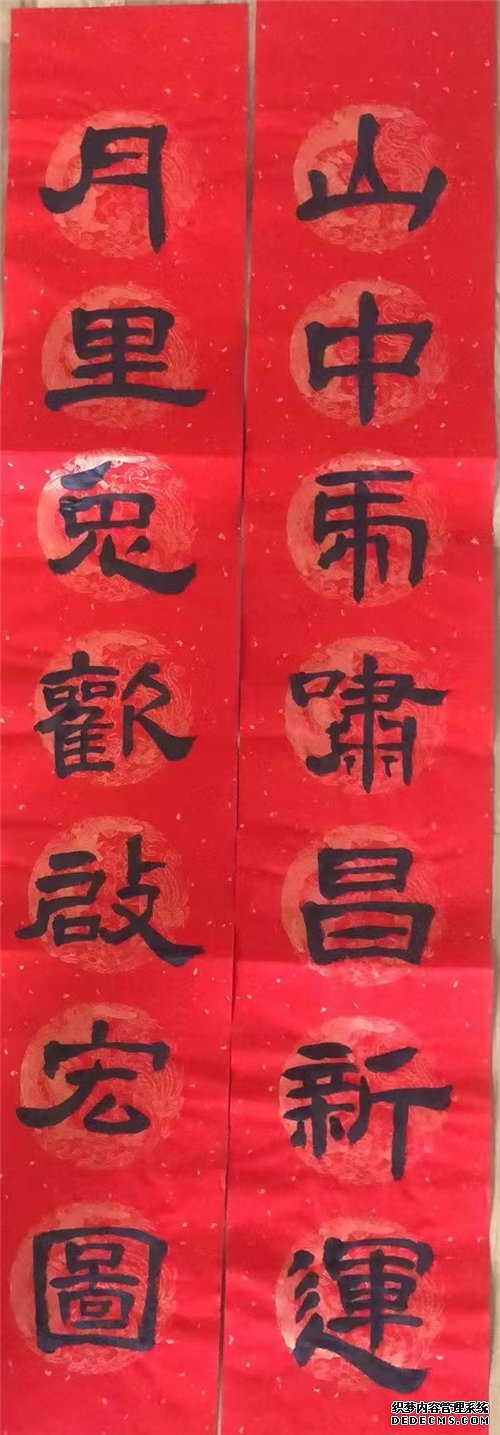 山中虎啸昌新運
月里兎歡啟宏圖
织梦内容管理系统
DEDECMS.COM